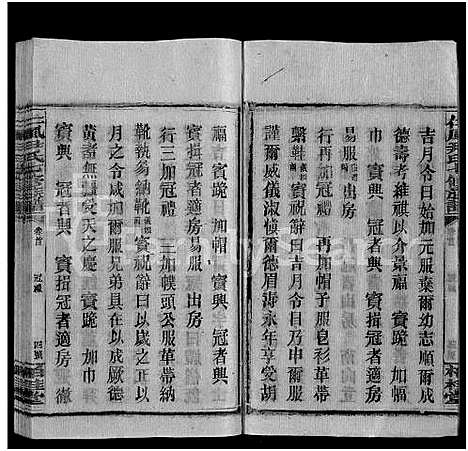 吉月令日始加元服棄爾幼志順爾成
德壽考維祺以介景福 賓興 冠者興
易服 出房
行再加冠禮 再加帽子服皂衫革帶
賓跪 祝辭曰吉月令日乃申爾服
謹爾威儀淑慎爾德眉壽永年享受胡
福 加帽 賓興 冠者興
賓揖冠者適房易服 出房
行三加冠禮 三加幞頭公服革帶納
靴執笏 祝辭曰以歲之正以
月之令咸加爾服兄弟具在以成厥德
黃耇無疆受天之慶 賓跪 加巾
賓興 賓揖冠者適房 徹
尹氏七修族譜
卷首 冠禮